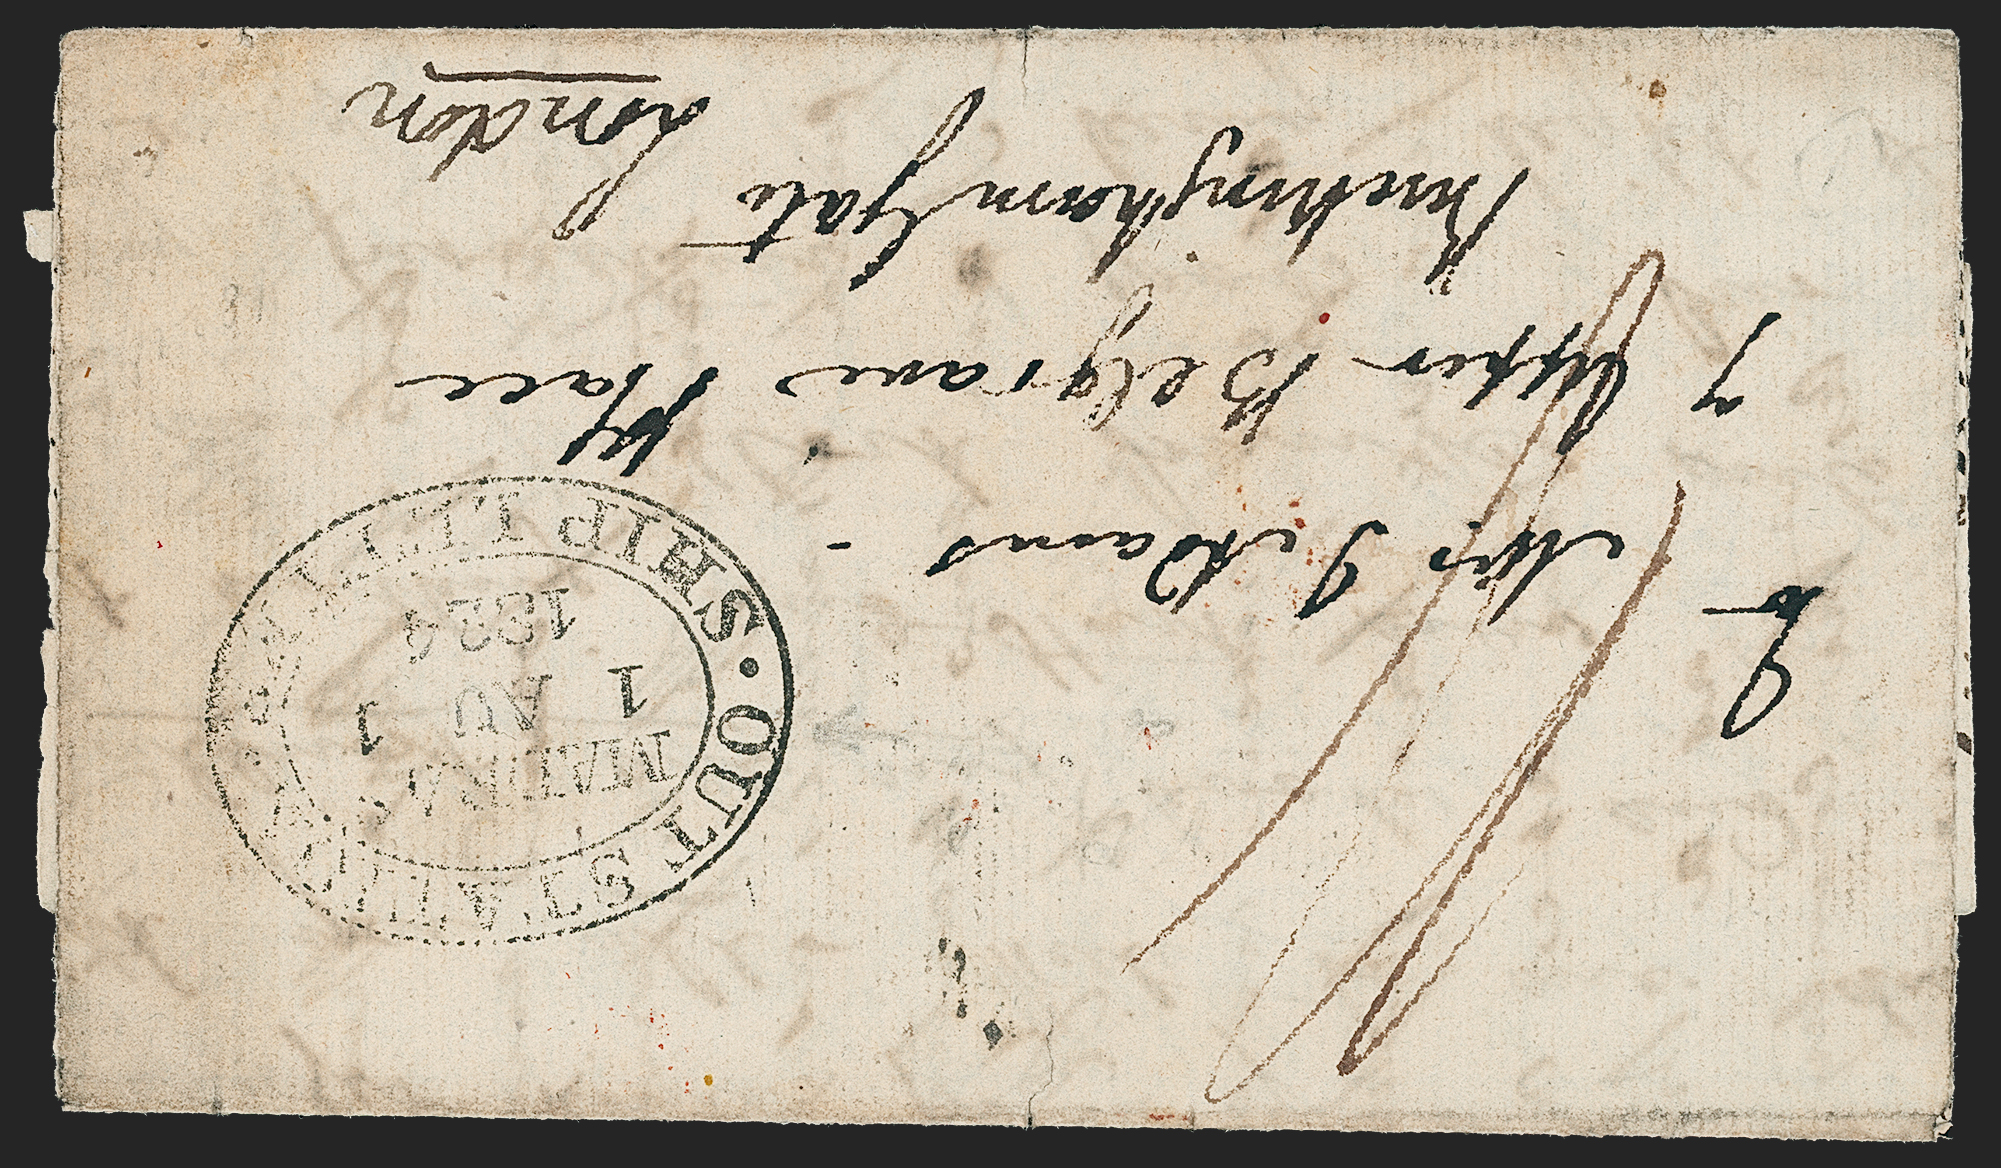 To
Miss Addams
7 Upper Belgrave Place
Buckingham Gate
London
OUT STATION
SHIP LETTER
MADRAS
1 AU 1
1824